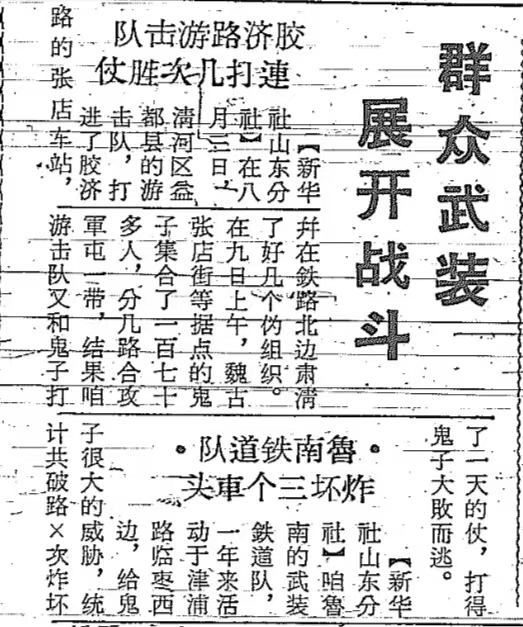 群众武装
展开战斗
胶济路游击队
連打几次胜仗
【新华
社山东分
社】在八
月三日，
清河区益
都县的游
击队，打
进了胶济
路的张店车站，
幷在鉄路北边肃清
了好几个伪组织。
在九日上午，魏古
张店街等据点的鬼
子集合了一百七十
多人，分几路合攻
軍屯一带，结果咱
游击队又和鬼子打
了一天的仗，打得
鬼子大敗而逃。
·魯南铁道队·
炸坏三个車头
【新华
社山东分
社】咱鲁
南的武装
鉄道队，
一年来活
动于津浦
路临枣西
边，给鬼
子很大的威胁，统
计共破路×次炸坏